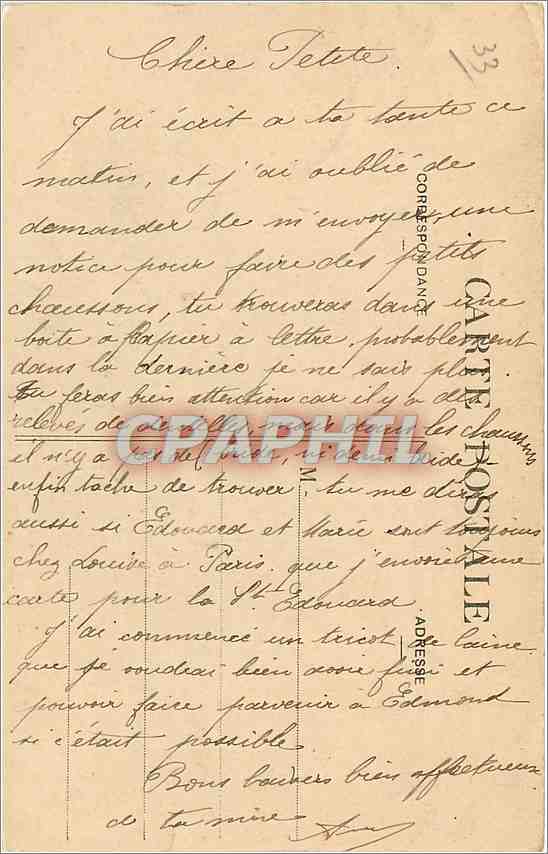 33
Chère Petite.
J'ai écrit a ta tante ce
matin, et j'ai oublié de
demander de m'envoyer, une
notice pour faire des petits
chaussons, tu trouveras dans une
boite à papier à lettre, probablement
dans la dernière je ne sais plus
tu feras bien attention car il y a des
relevés de dentelles, mais dans les chaussons
il n'y a pas de, ni demi bride
enfin tache de trouver, tu me diras
aussi si Edouard et Marie sont toujours
chez Louise à Paris que j'envoie une
carte pour la St Edouard
J'ai commencé un tricot de laine
que je voudrai bien avoir fini et
pouvoir faire parvenir à Edmond
si c'était possible.
Bons baisers bien affectueux
de ta mère
CORRESPONDANCE
CARTE POSTALE
M
ADRESSE
CPAPHIL